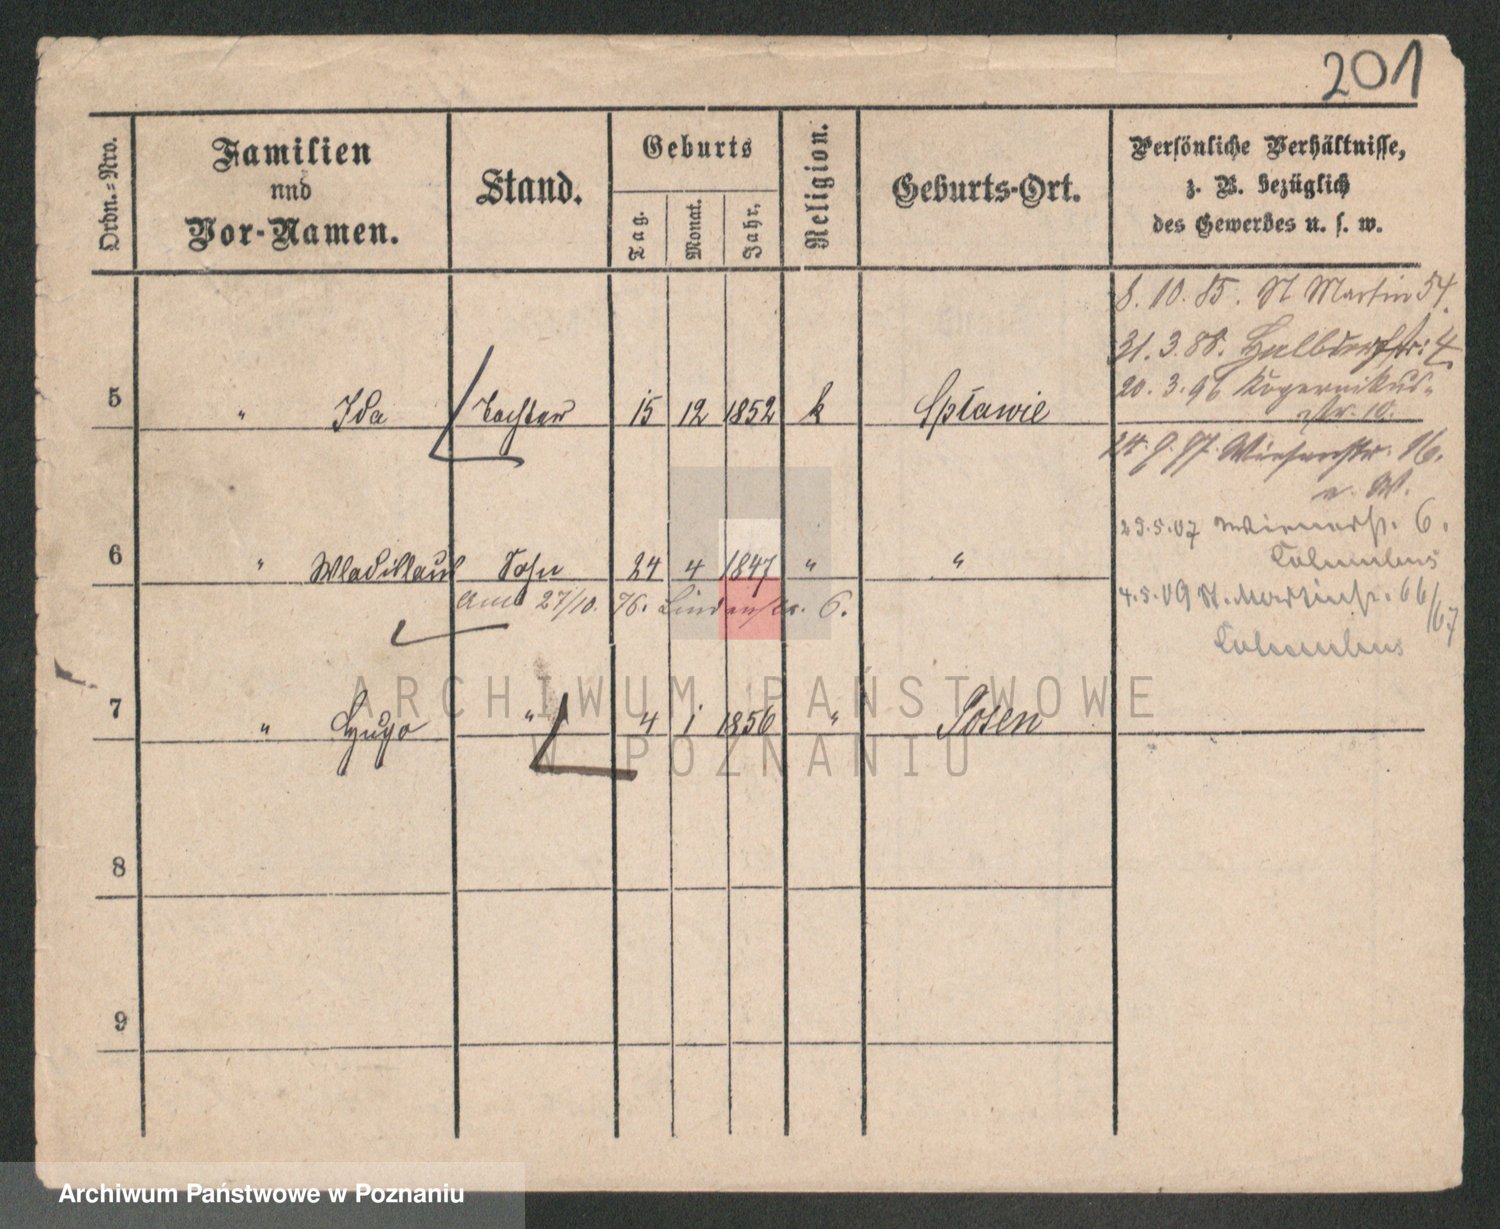 201
Ordn.=Nro.
Familien
nnd
Vor-Namen.
Stand.
Geburts
Tag.
Monat.
Jahr.
Religion.
Geburts-Ort.
Persönliche Verhältnisse,
z. B. bezüglich
des Gewerbes u. s. w.
8. 10. 85. St Martin 54.
31. 3. 88. Halbdorfstr. 4
20. 3. 96 Kopernikus-
str. 10.
5 " Ida Tochter 15 12 1852 k Spławie
24. 9. 97. Wiesenstr. 16.
25.5.07 Wienerstr. 6.
Columbus
6 " Wladislaus Sohn 24 4 1847 " "
27/10. 76. Lindenstr. 6.
4.5.09 St. Martinstr. 66/67
Columbus
7 " Hugo " 4 1 1856 " Posen
8
9
ARCHIWUM PAŃSTWOWE
W POZNANIU
Archiwum Państwowe w Poznaniu